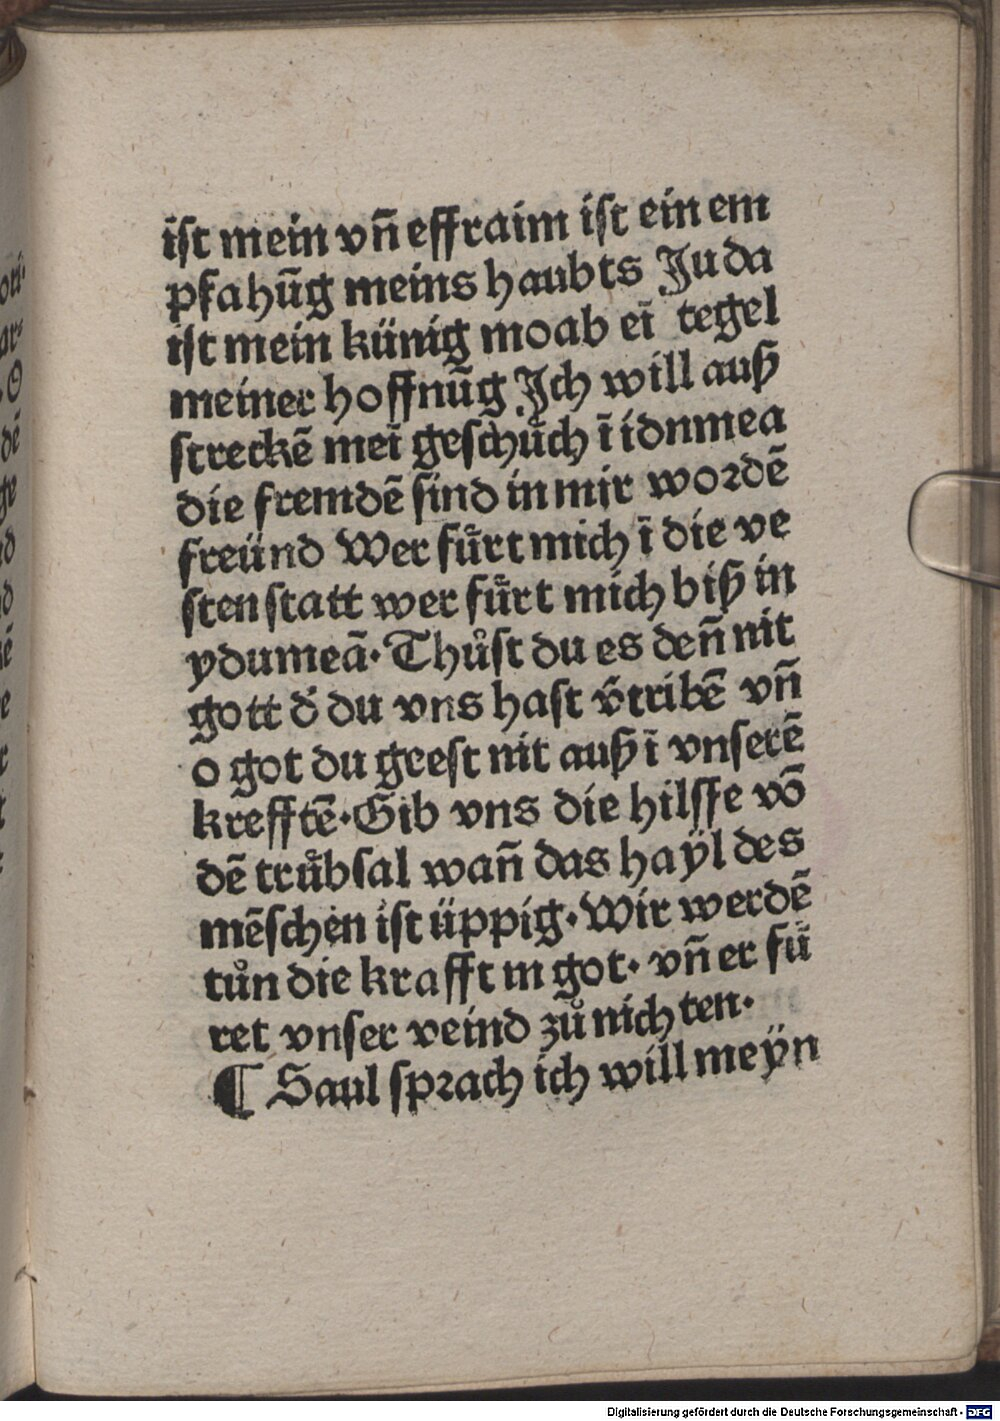 ist mein vn̄ effraim ist ein em
pfahūg meins haubts Juda
ist mein künig moab eī tegel
meiner hoffnūg Ich will auß
streckē meī geschůch ī idnmea
die fremdē sind in mir wordē
freünd Wer fůrt mich ī die ve
sten statt wer fůrt mich biß in
ydumeā. Thůst du es den̄ nit
gott d̄ du vns hast v̄tribē vn̄
o got du geest nit auß ī vnserē
krefftē. Gib vns die hilffe vō
dē trůbsal wan̄ das haÿl des
mēschen ist üppig. Wir werdē
tůn die krafft in got. vn̄ er fů
ret vnser veind zů nichten.
¶ Saul sprach ich will meÿn
Digitalisierung gefördert durch die Deutsche Forschungsgemeinschaft - DFG